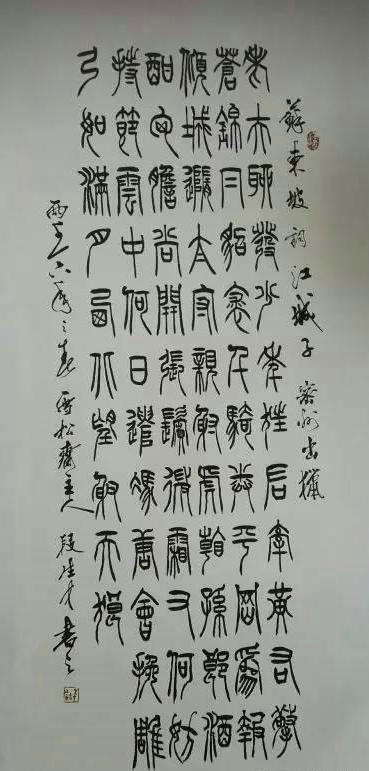 蘇東坡詞江城子密州出獵
老夫聊發少年狂左牽黃右擎
蒼錦冃貂裘千騎卷平岡爲報
傾城隨太守親射虎看孫郎酒
酣胸膽尚開張鬢微霜又何妨
持節雲中何日遣馮唐會挽雕
弓如滿月西北望射天狼
六年之春 松齋主人 書之